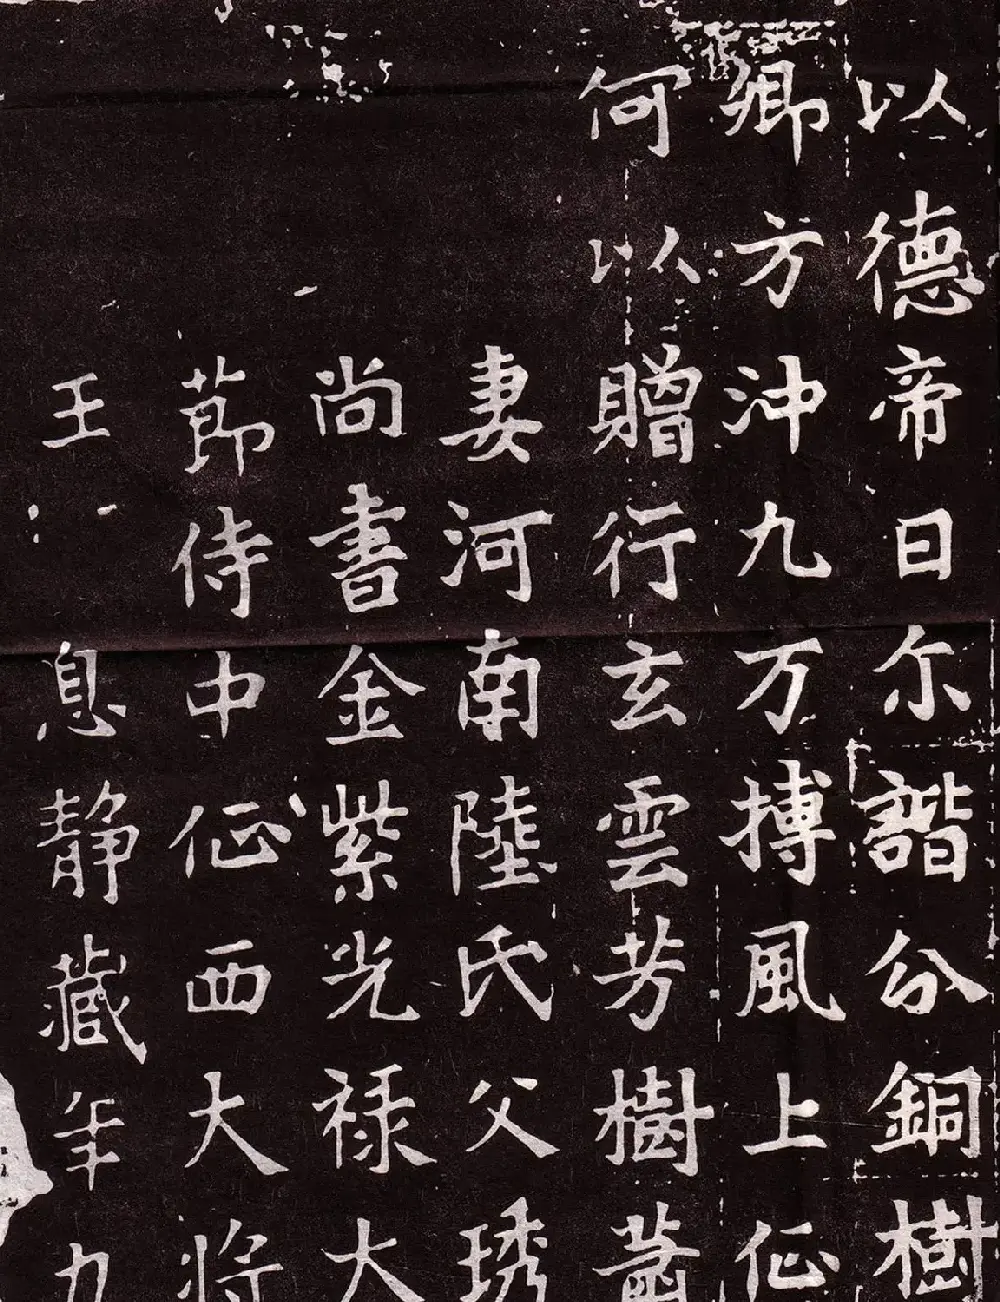 以德帝日尓諧公銅樹
卿方沖九万搏風上征
何以贈行玄雲芳樹
妻河南陸氏父琇
尚書金紫光祿大
莭侍中征西大將
王息静藏年九